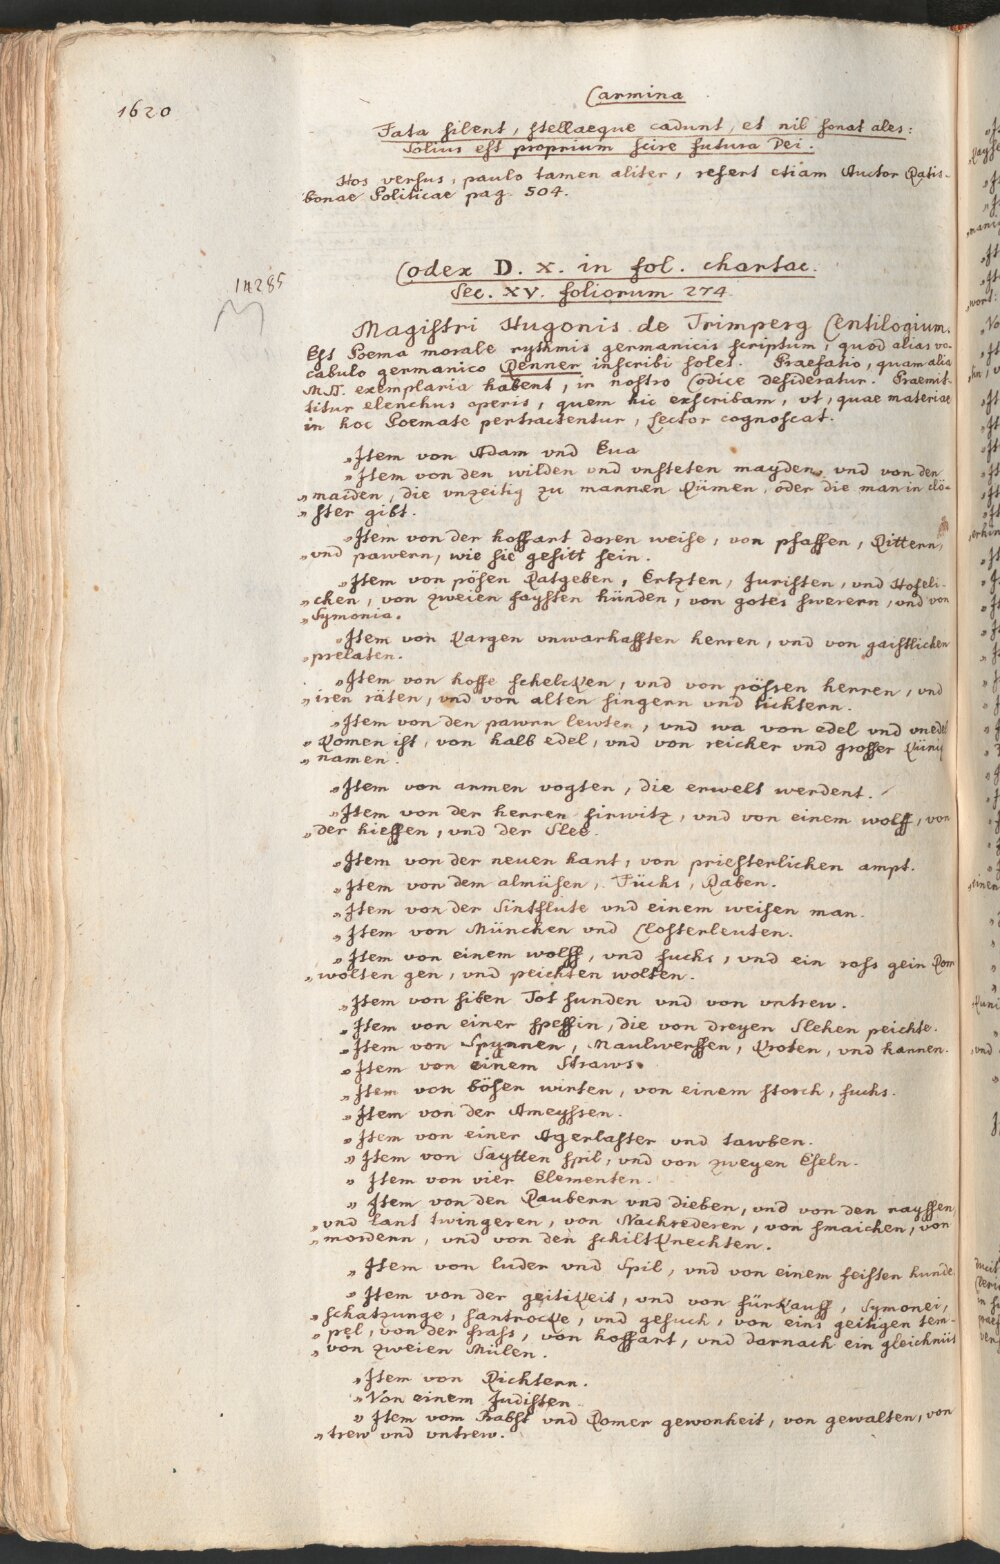 1620
Carmina
Fata silent, stellaeque cadunt, et nil sonat ales:
Solius est proprium scire futura Dei.
Hos versus, paulo tamen aliter, refert etiam Auctor Ratis-
bonae Politicae pag. 504.
14285
Codex D. X. in fol. chartac.
Sec. XV. foliorum 274.
Magistri Hugonis de Trimperg Centilogium.
Est Poema morale rythmis germanicis scriptum, quod alias vo-
cabulo germanico Renner inscribi solet. Praefatio, quam alia
MSS. exemplaria habent, in nostro Codice desideratur. Praemit-
titur elenchus operis, quem hic exscribam, ut, quae materiae
in hoc Poemate pertractentur, Lector cognoscat.
„Item von Adam vnd Eua
„Item von den wilden vnd vnsteten mayden, vnd von den
„maiden, die vnzeitig zu mannen kümen, oder die man in clö-
„ster gibt.
„Item von der hoffart doren weise, von pfaffen, Rittern,
„vnd pawern, wie sie gesitt sein.
„Item von pösen Ratgeben, Ertzten, Juristen, vnd Hofeli-
„chen, von zweien faysten hünden, von gotes swerern, vnd von
„Symonia.
„Item von kargen vnwarhafften herren, vnd von gaistlichen
„prelaten.
„Item von hoffe schelcken, vnd von pössen herren, vnd
„iren räten, vnd von alten singern vnd tichtern.
„Item von den pawrn lewten, vnd wa von edel vnd vnedel
„komen ist, von halb edel, vnd von reicher vnd grosser
„namen.
„Item von armen vogten, die erwelt werdent.
„Item von der herren firwitz, vnd von einem wolff, von
„der hieffen, vnd der Slee.
„Item von der neuen hant, von priesterlichen ampt.
„Item von dem almüsen, Füchs, Raben.
„Item von der Sintflute vnd einem weisen man.
„Item von München vnd Closterleuten.
„Item von einem wolff, vnd fuchs, vnd ein ross gein Rom
„wolten gen, vnd peichten wolten.
„Item von siben Tot sunden vnd von vntrew.
„Item von einer speffin, die von dreyen Slehen peichte.
„Item von Spynnen, Maulwerffen, kroten, vnd hannen.
„Item von einem Straws.
„Item von bösen wirten, von einem storch, fuchs.
„Item von der Ameyssen.
„Item von einer Agerlaster vnd tawben.
„Item von Saytten spil, vnd von zweyen Eseln.
„Item von vier Elementen.
„Item von den Raubern vnd dieben, vnd von den rayssen,
„vnd lant twingeren, von Nachrederen, von smaichen, von
„mordern, vnd von den schiltknechten.
„Item von luder vnd Spil, vnd von einem feisten hunde
„Item von der geitikeit, vnd von fürkauff, Symonei,
„schatzunge, santrocke, vnd gesuch, von eins geitigen tem-
„pel, von der frass, von hoffart, vnd darnach ein gleichnüs
„von zweien Mülen.
„Item von Richtern.
„Von einem Judisten
„Item vom Babst vnd Romer gewonheit, von gewalten, von
„trew vnd vntrew.